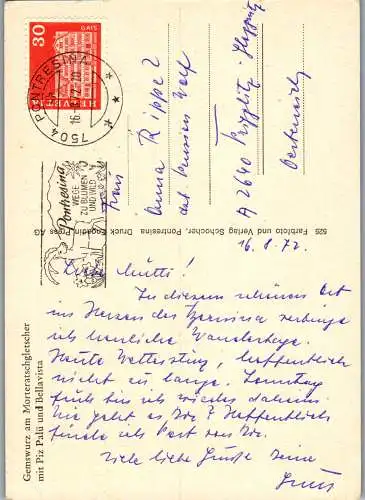 HELVETIA
30
GAIS
7504 PONTRESINA
Pontresina
WEGE
ZU BLUMEN
UND WILD
Frau
Anna Rippel
dzt. Pension Wolf
A 2640
Österreich
525 Farbfoto und Verlag Schocher, Pontresina Druck Engadin Press AG
Gemswurz am Morteratschgletscher
mit Piz Palü und Bellavista
16.8.72.
Liebe Mutti!
In diesem schönen Ort
im Herzen des Bernina verbringe
ich herrliche Wandertage.
Heute Wettersturz, hoffentlich
nicht zu lange. Sonntag
früh bin ich wieder daheim.
Wie geht es Dir? Hoffentlich
finde ich Post von Dir.
Viele liebe Grüße Deine